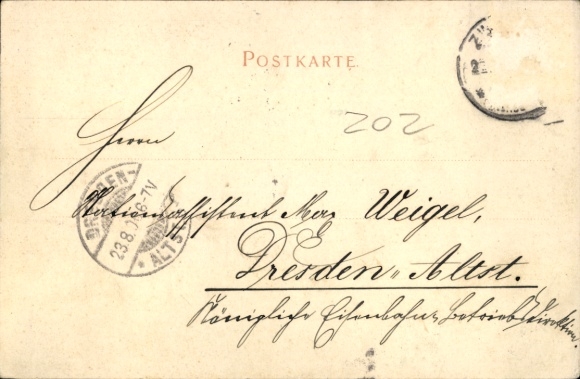 POSTKARTE.
202
Herrn
Stationsassistent Max Weigel,
Dresden-Altst.
Königliche Eisenbahn-Betriebsdirektion.
DRESDEN-
ALTST.
23.8.
6-7V